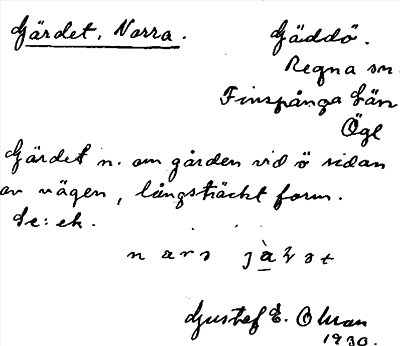 Gärdet, Norra.
Gäddö.
Regna sn.
Finspånga län
Ögl
Gärdet n. om gården vid ö sidan
av vägen, långsträckt form.
Se: ek.
Gustaf E.
1930.